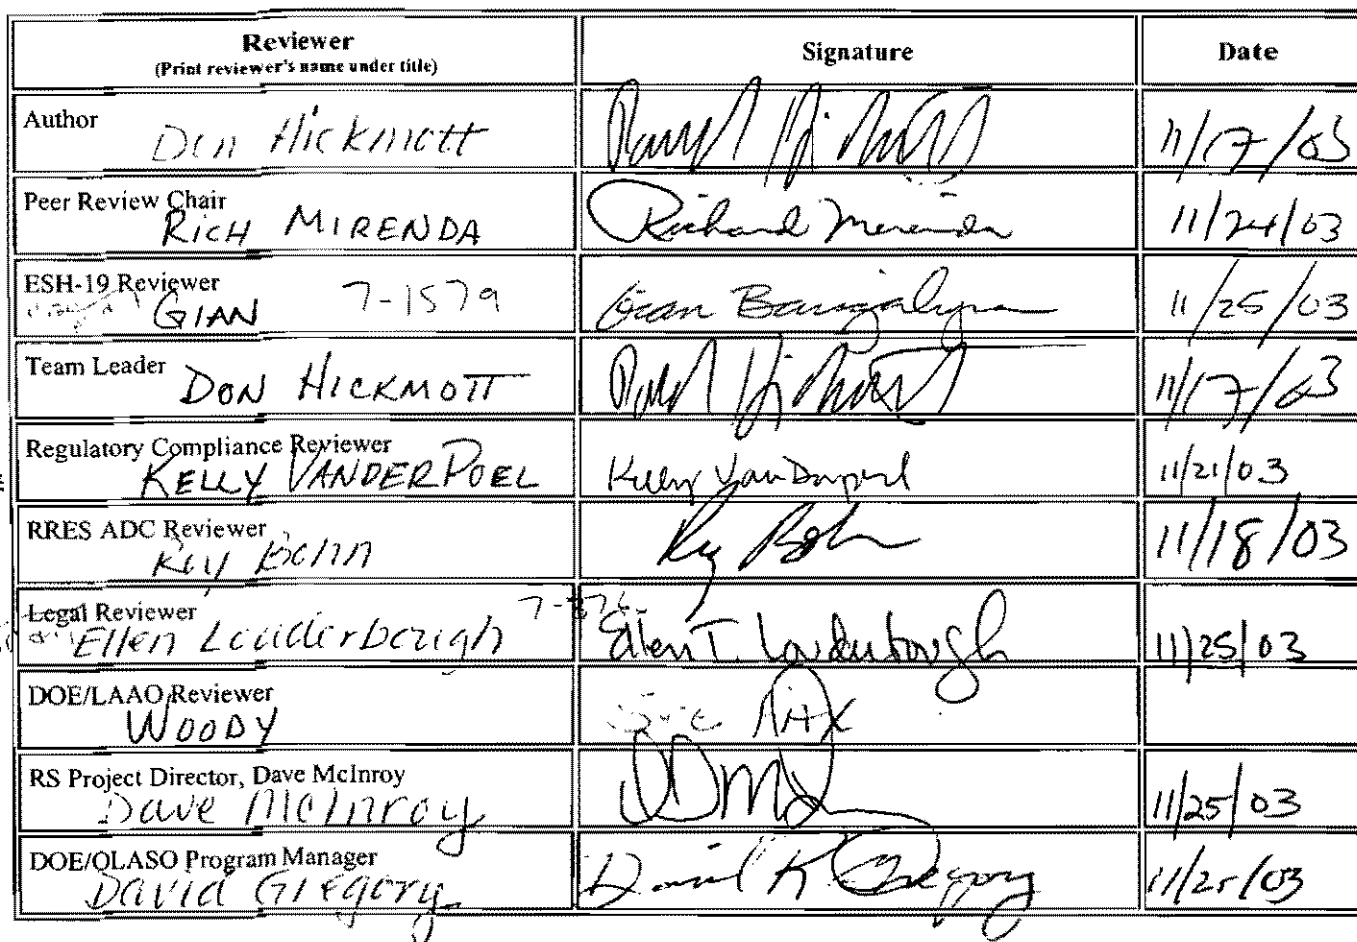 Reviewer Signature Date
(Print reviewer's name under title)
Author Don Hickmott 11/17/03
Peer Review Chair
Rich MIRENDA Richard Mirenda 11/24/03
ESH-19 Reviewer
GIAN 7-1579 Gian 11/25/03
Team Leader DON HICKMOTT 11/17/03
Regulatory Compliance Reviewer
KELLY VANDERPOEL Kelly VanDerpoel 11/21/03
RRES ADC Reviewer
Roy Bohn Roy Bohn 11/18/03
Legal Reviewer
Ellen Louderbough Ellen T. Louderbough 11/25/03
DOE/LAAO Reviewer
WOODY See FAX
RS Project Director, Dave McInroy
Dave McInroy 11/25/03
DOE/OLASO Program Manager
David Gregory David K Gregory 11/25/03